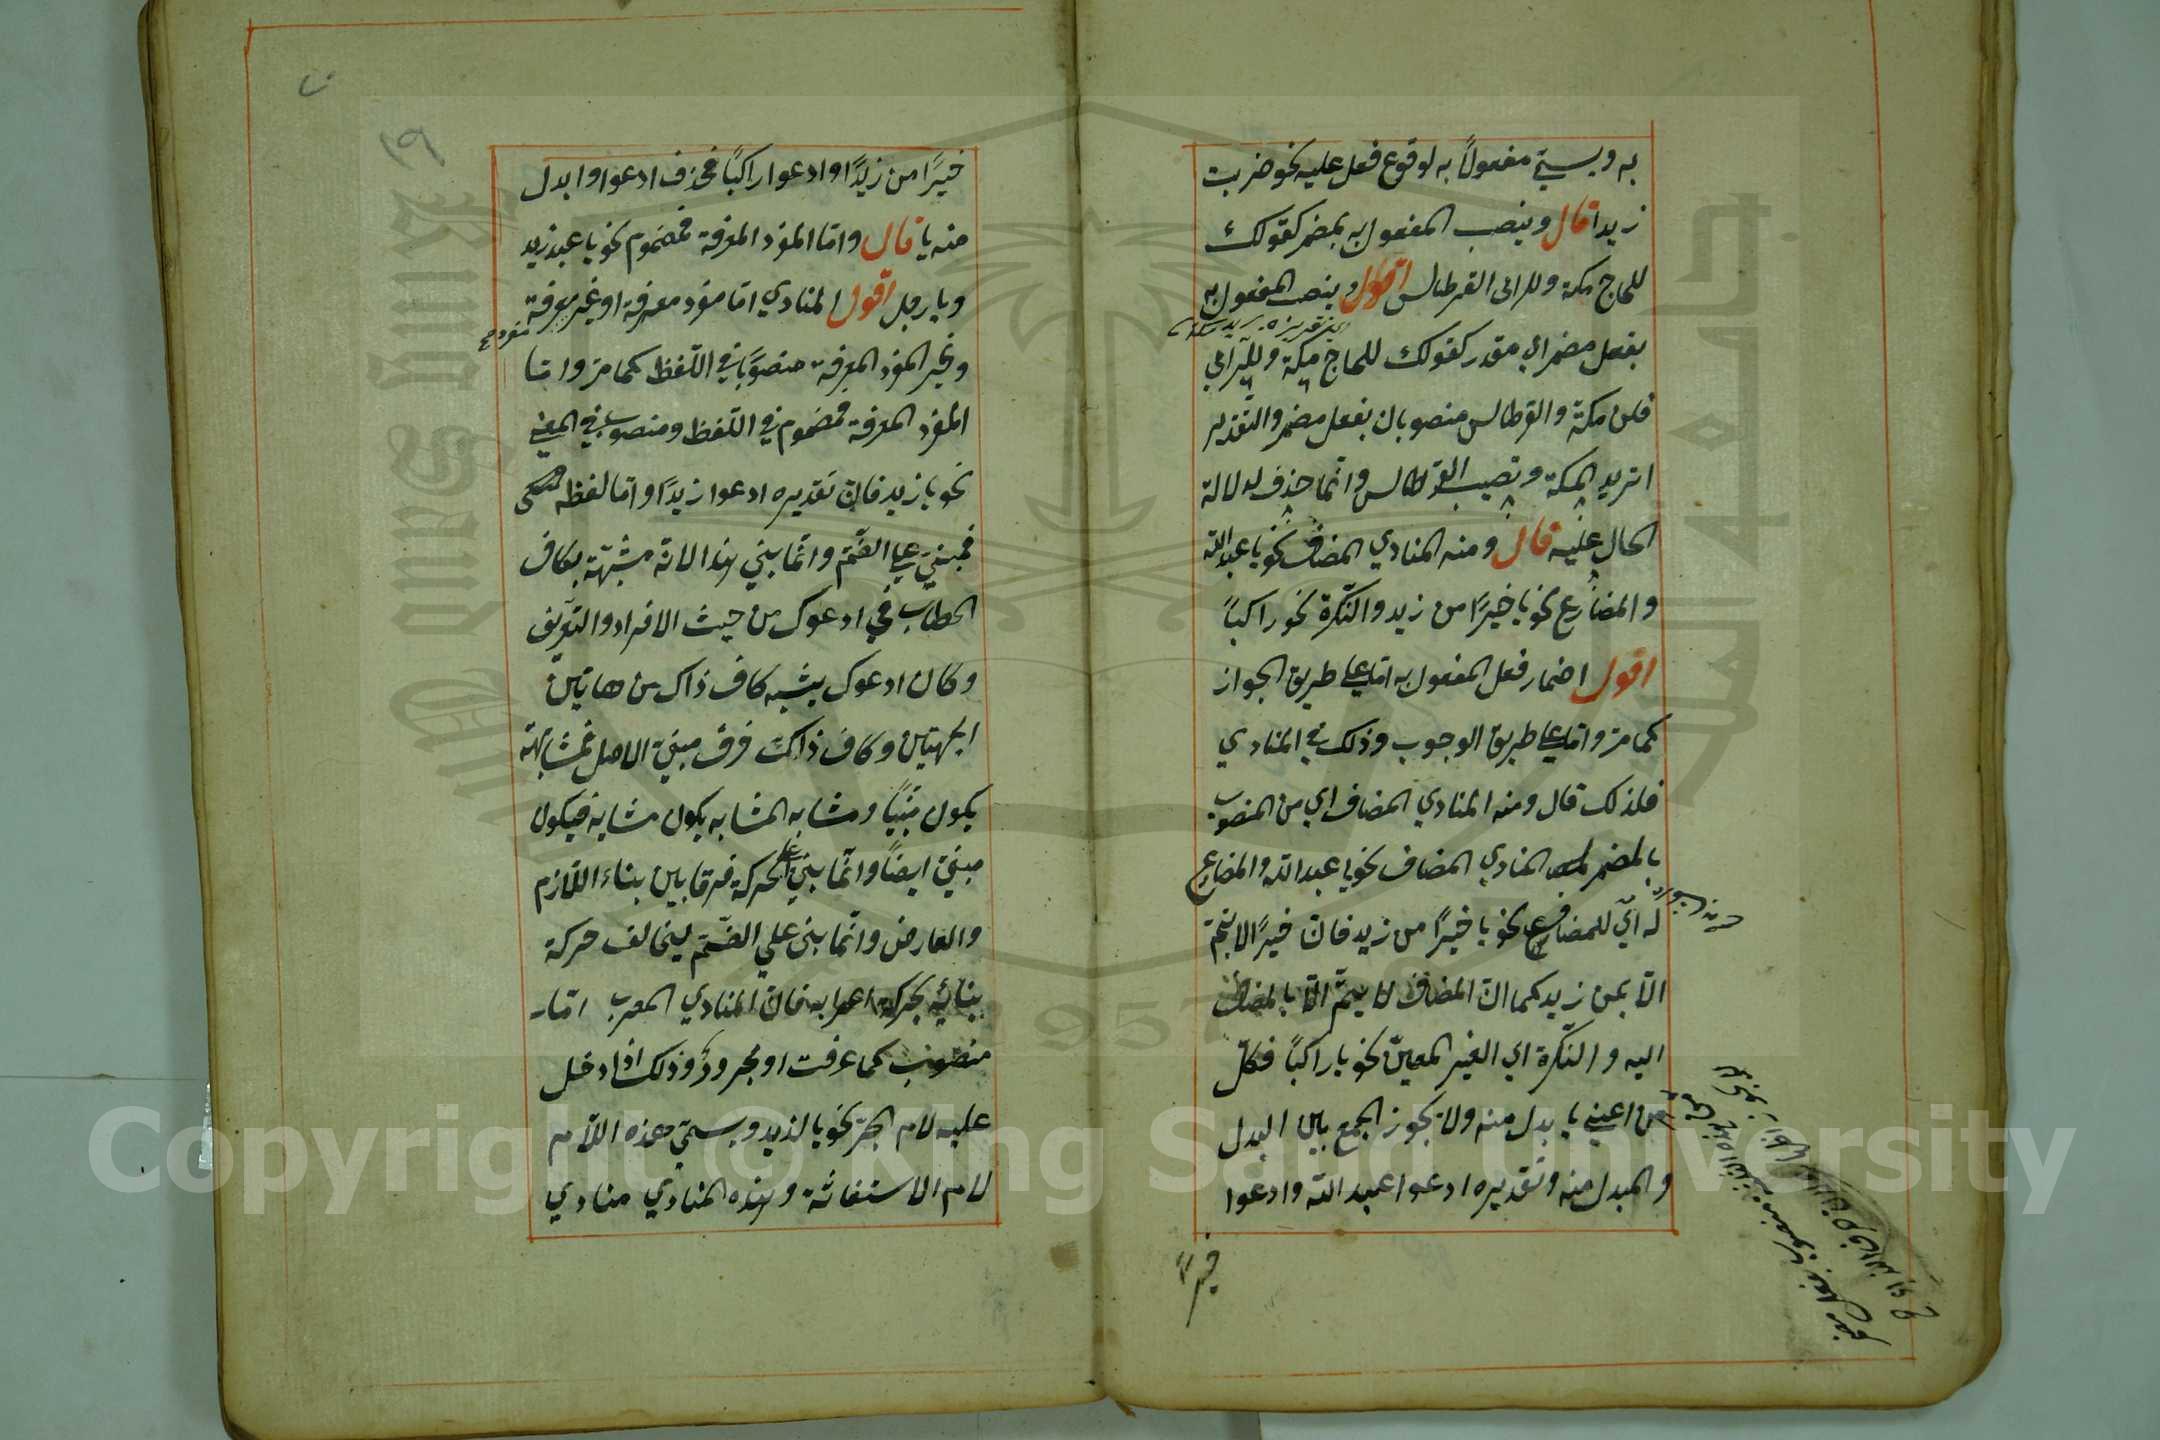 به ويسمي مفعولاً به لوقوع فعل عليه نحو ضربت
زيدا قال وينصب المفعول به بمضمر كقولك
للحاج مكة وللرامي القرطاس اقول وينصب المفعول به
بفعل مضمر اي مقدر كقولك للحاج مكة وللرامي
فان مكة والقرطاس منصوبان بفعل مضمر والتقدير
اتريد المكة وتصيب القرطاس وانما حذف لدلالة
الحال عليه قال ومنه المنادي المضاف نحو يا عبد الله
والمضارع نحو يا خيرًا من زيد والنكرة نحو راكباً
اقول اضمار فعل المفعول به اما علي طريق الجواز
كما مر واما علي طريق الوجوب وذلك في المنادي
فلذلك قال ومنه المنادي المضاف اي من المنصوب
بالمضمر المنادي المضاف نحو يا عبد الله والمضارع
له اي للمضاف نحو يا خيرًا من زيد فان خيرًا لا يتم
الا بمن زيد كما ان المضاف لا يتم الا بالمضاف
اليه والنكرة اي الغير المعين نحو يا راكباً فكل
من اعني يا بدل منه ولا يجوز الجمع بين البدل
والمبدل منه وتقديره ادعوا عبد الله وادعوا
خيرًا
١٩
خيرًا من زيدًا وادعوا راكبًا فحذف ادعوا وابدل
منه يا قال واما المفرد المعرفة فمضموم نحو يا عبد زيد
ويا رجل اقول المنادي اما مفرد معرفة او غير معرفة
وغير المفرد المعرفة منصوبًا في اللفظ كما مر واما
المفرد المعرفة فمضموم في اللفظ ومنصوب في المعني
نحو يا زيد فان تقديره ادعوا زيدًا واما لفظه
فمبني علي الضم وانما بني هذا لانه مشبهة بكاف
الخطاب في ادعوك من حيث الافراد والتعريف
وكان ادعوك يشبه كاف ذاك من هاتين
الجهتين وكاف ذاك حرف مبني الاصل فمشابهته
يكون مبنيًا ومشابه المشابه يكون مشابه فيكون
مبني ايضاً وانما بني علي الحركة فرقا بين بناء اللازم
والعارض وانما بني علي الضم ليخالف حركة
بنائيه بحركة اعرابه فان المنادي المعرب اما
منصوب كما عرفت او مجرور وذلك اذا دخل
عليه لام الجر نحو يا لزيد ويسمي هذه اللام
لام الاستغاثة وهذه المنادي منادي
Copyright © King Saud University
1957